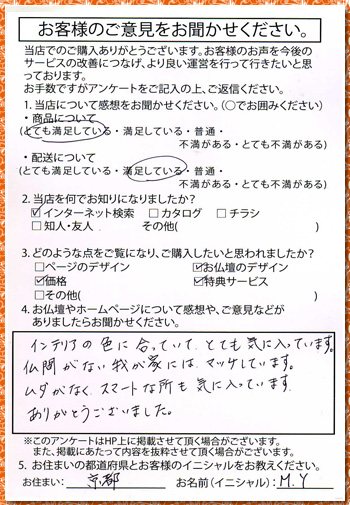 お客様のご意見をお聞かせください。
当店でのご購入ありがとうございます。お客様のお声を今後の
サービスの改善につなげ、より良い運営を行って行きたいと思
っております。
お手数ですがアンケートをご記入の上、ご返信ください。
1. 当店について感想をお聞かせください。(〇でお囲みください)
・商品について
(とても満足している・満足している・普通・
不満がある・とても不満がある)
・配送について
(とても満足している・満足している・普通・
不満がある・とても不満がある)
2. 当店を何でお知りになりましたか?
☑インターネット検索 □カタログ □チラシ
□知人・友人 その他( )
3. どのような点をご覧になり、ご購入したいと思われましたか?
□ページのデザイン ☑お仏壇のデザイン
☑価格 ☑特典サービス
□その他( )
4. お仏壇やホームページについて感想や、ご意見などが
ありましたらお聞かせください。
インテリアの色に合っていて、とても気に入っています。
仏間がない我が家には、マッチしています。
ムダがなく、スマートな所も気に入っています。
ありがとうございました。
※このアンケートはHP上に掲載させて頂く場合がございます。
また、掲載にあたって内容を抜粋させて頂く場合がございます。
5. お住まいの都道府県とお客様のイニシャルをお教えください。
お住まい: 京都 お名前(イニシャル): M.Y